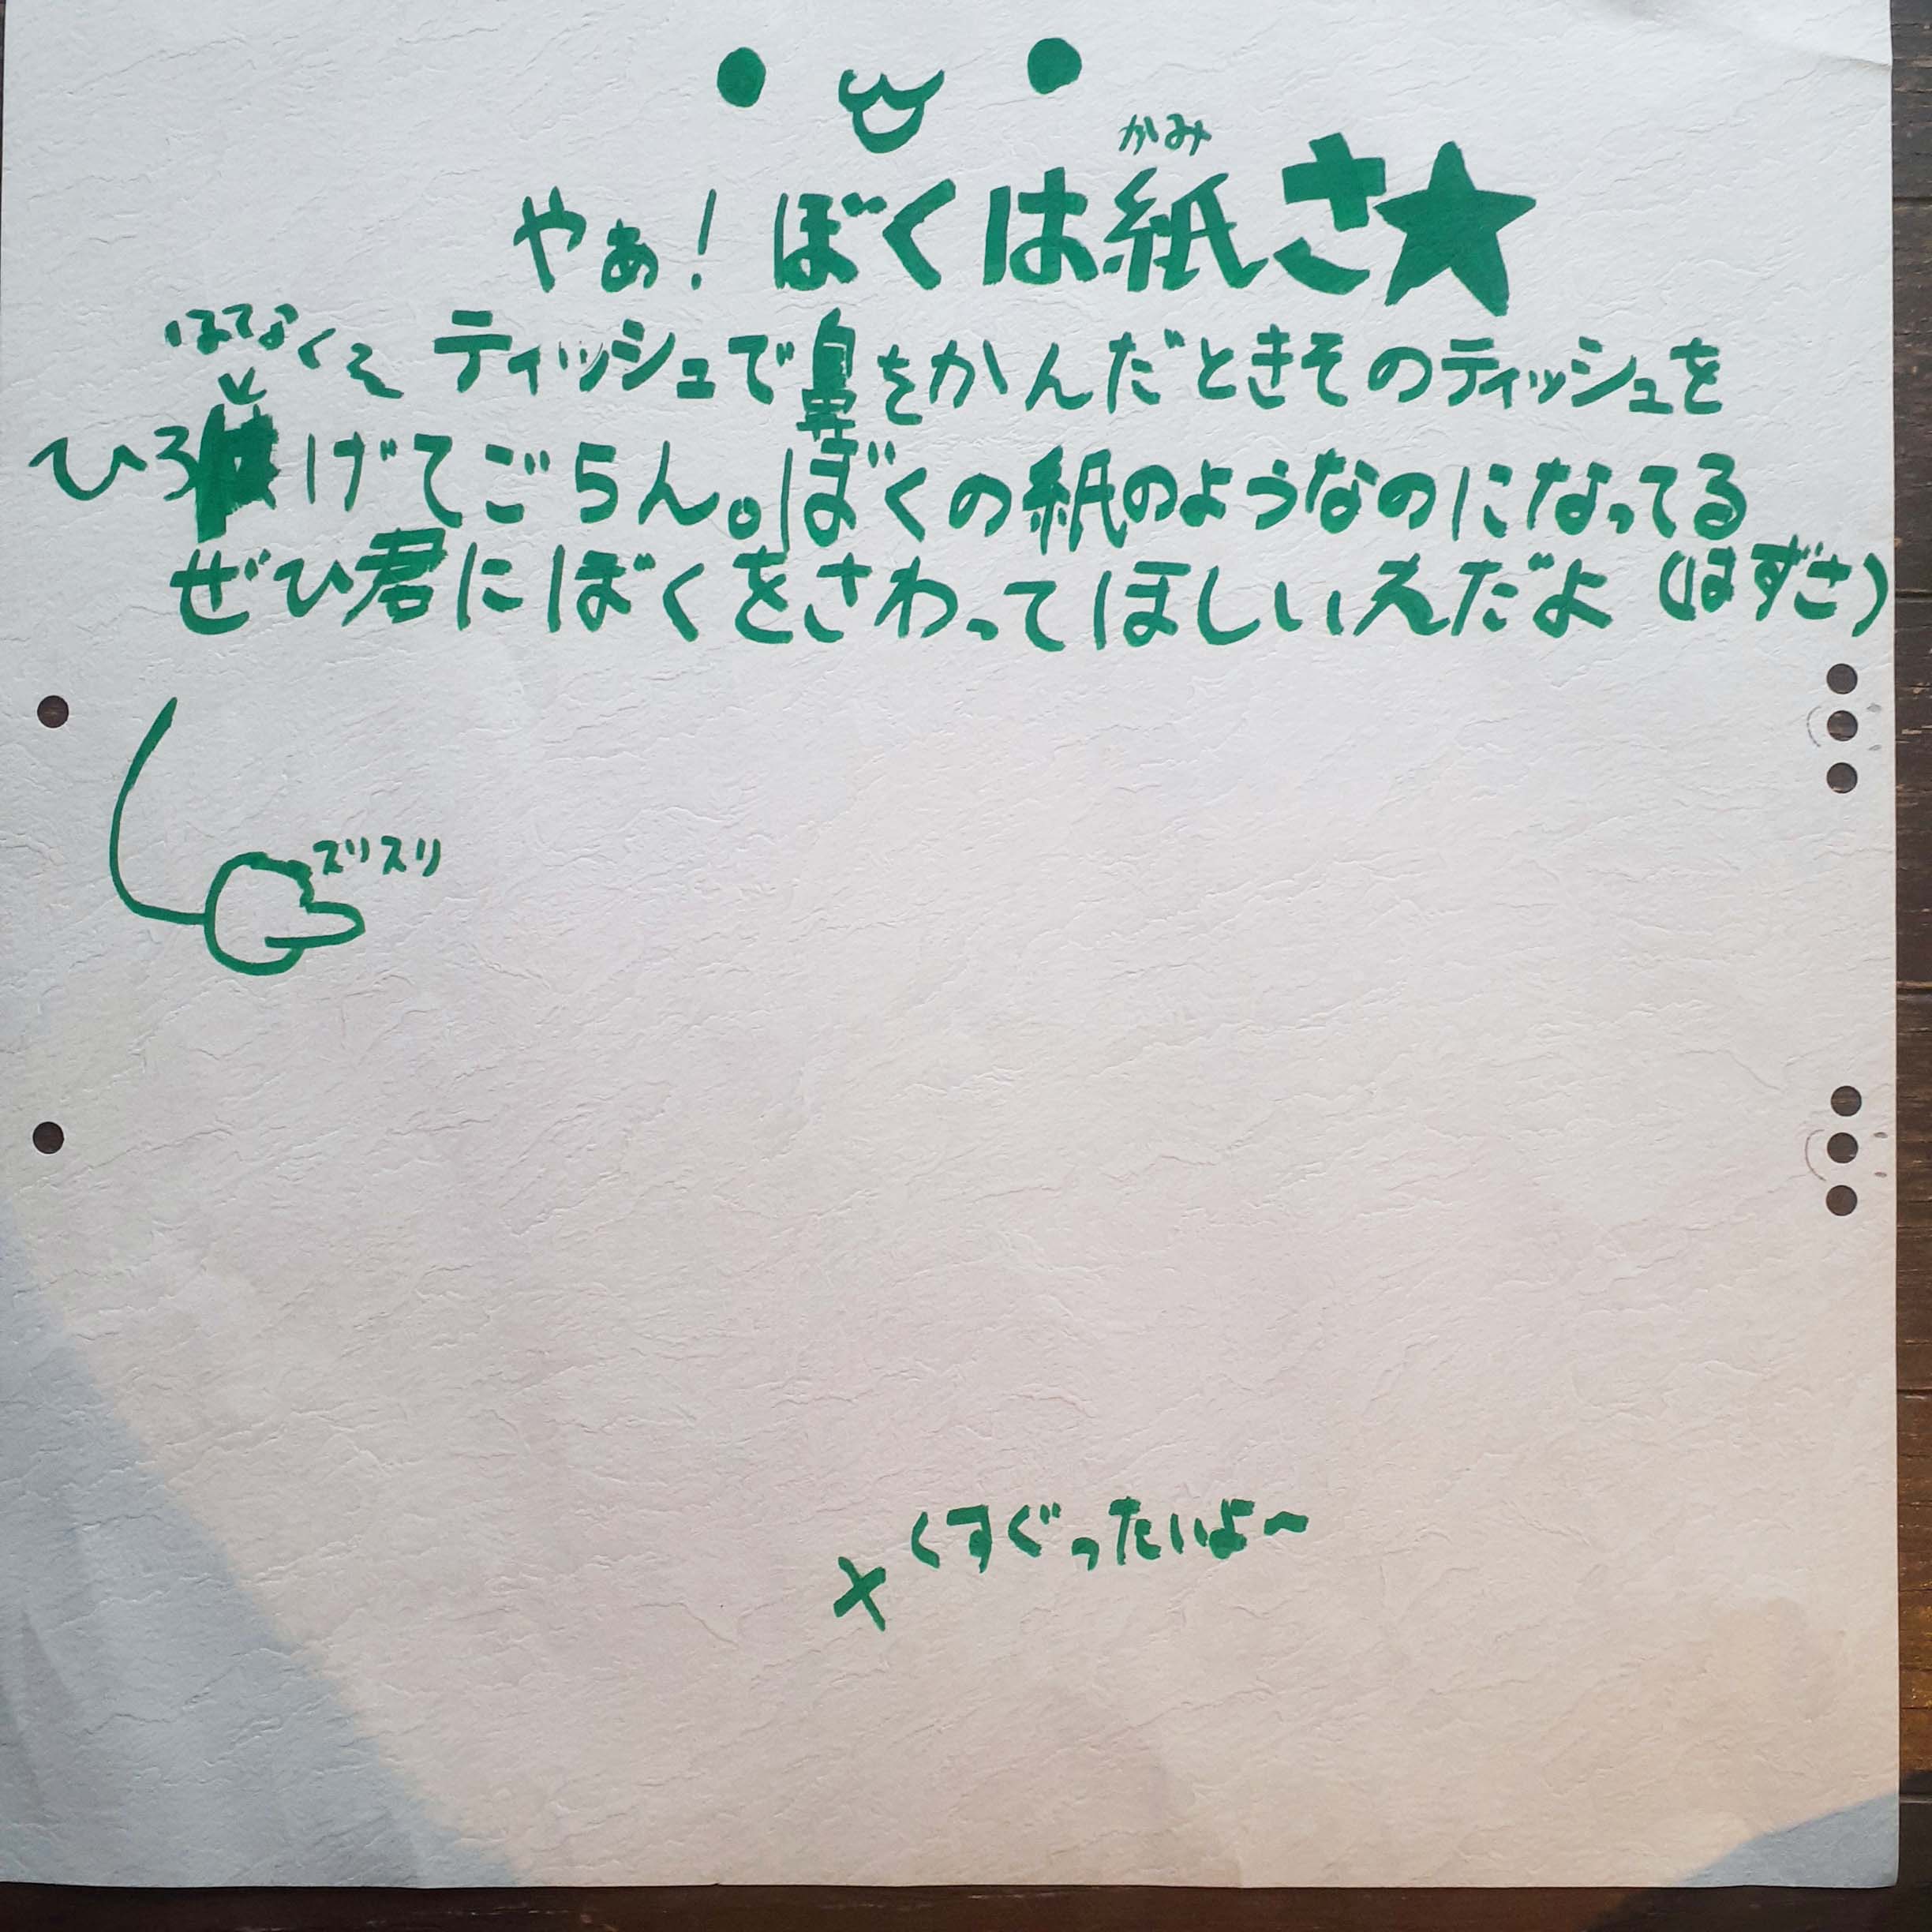 かみ
やぁ！ぼくは紙さ★
はてなくそ
ティッシュで鼻をかんだときそのティッシュを
ひろげてごらん。ぼくの紙のようなのになってる
ぜひ君にぼくをさわってほしいえだよ（はずさ）
スリスリ
くすぐったいよ〜